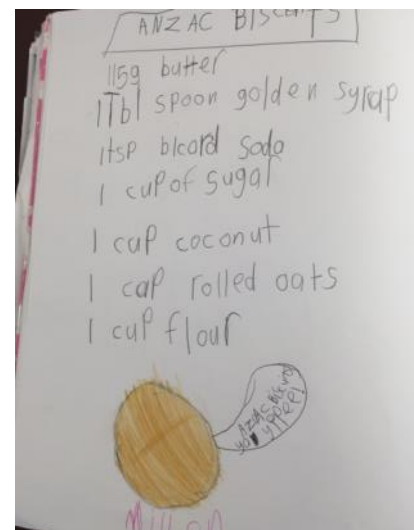 ANZAC BIScuits
115g butter
1Tbl spoon golden syrap
1tsp bicard soda
1 cup of sugar
1 cup coconut
1 cap rolled oats
1 cup flour
yppeee!